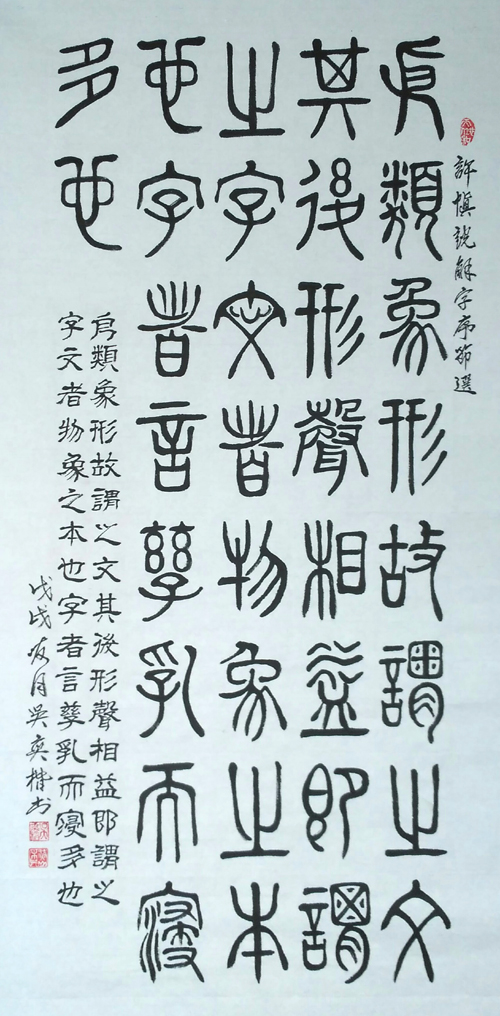 許慎説解字序節選
㐆類象形故謂之文
其後形聲相益即謂
之字文者物象之本
也字者言孳乳而寖
多也
㐆類象形故謂之文其後形聲相益即謂之
字文者物象之本也字者言孳乳而寖多也
戊戌月吳奕楷书